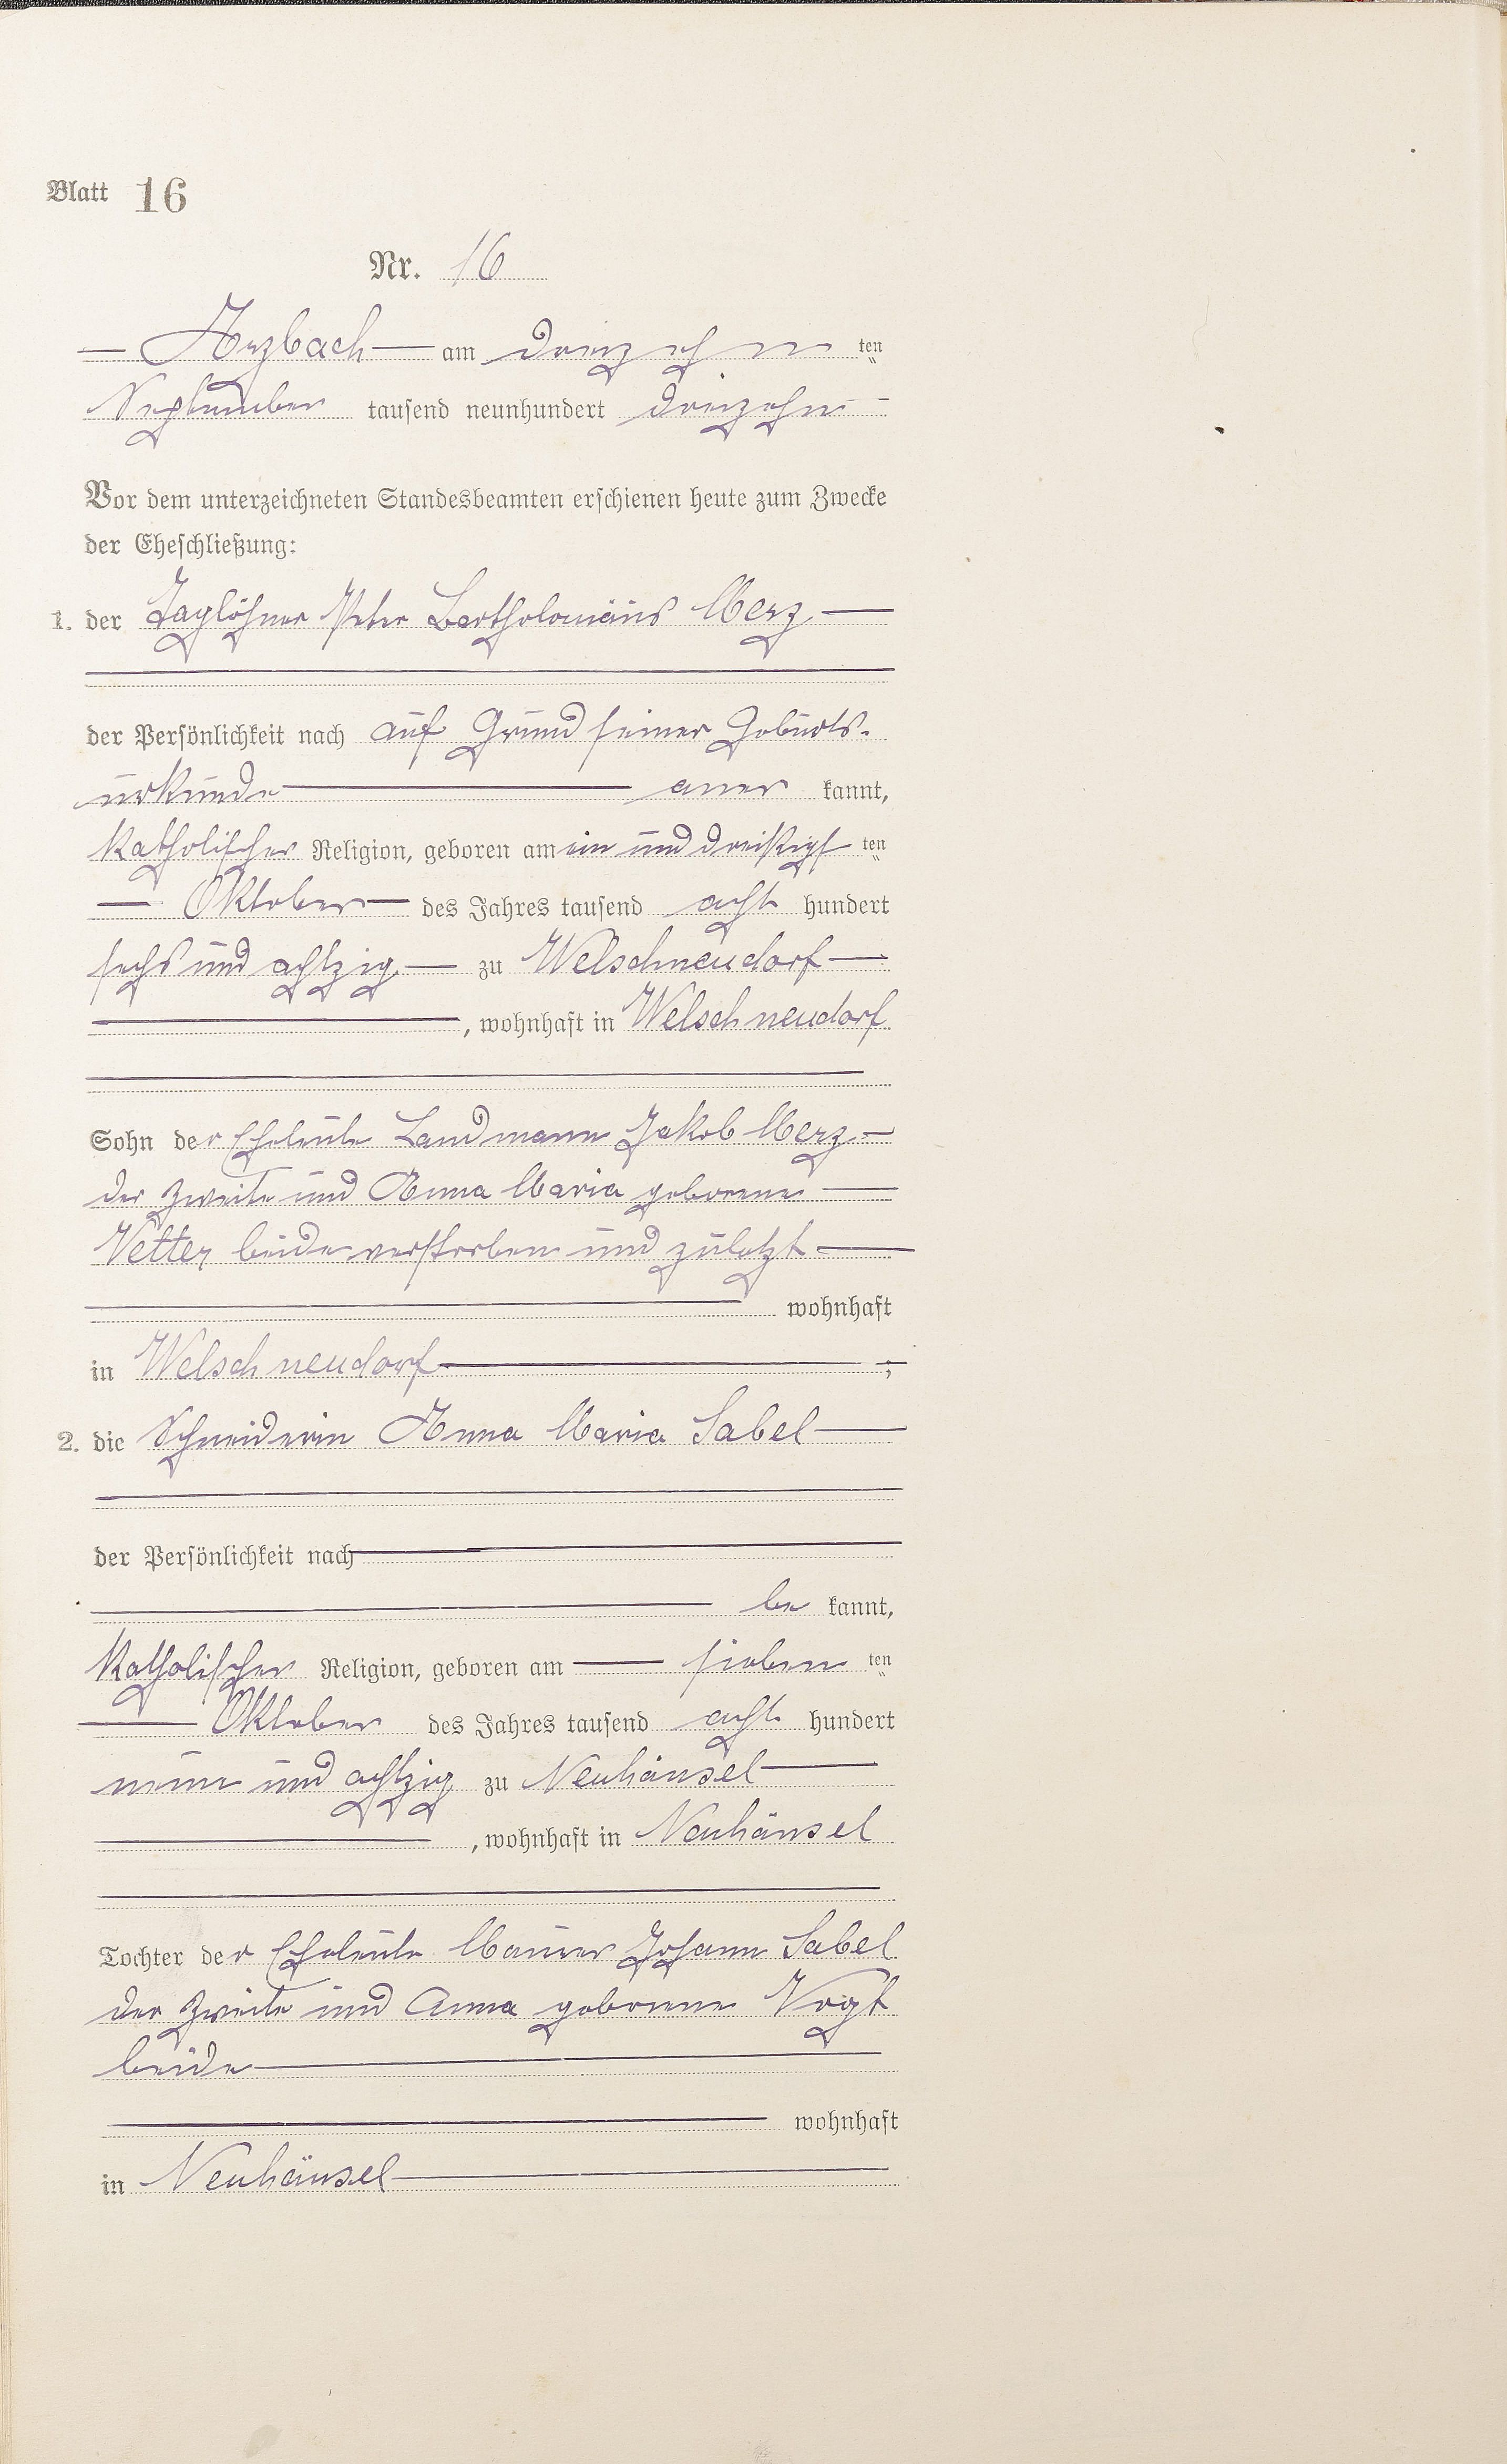 Blatt 16
Nr. 16
Arzbach am dreizehn ten
September tausend neunhundert dreizehn
Vor dem unterzeichneten Standesbeamten erschienen heute zum Zwecke
der Eheschließung:
1. der Taglöhner Peter Bartholomäus Merz
der Persönlichkeit nach auf Grund seiner Geburts-
urkunde aner kannt,
katholischer Religion, geboren am ein und dreißigst ten
Oktober des Jahres tausend acht hundert
sechs und achtzig zu Welschneudorf
, wohnhaft in Welschneudorf
Sohn der Eheleute Landmann Jakob Merz
der Zweite und Anna Maria geborene
Vetter beide verstorben und zuletzt
wohnhaft
in Welschneudorf ;
2. die Schneiderin Anna Maria Sabel
der Persönlichkeit nach
be kannt,
katholischer Religion, geboren am sieben ten
Oktober des Jahres tausend acht hundert
neun und achtzig zu Neuhäusel
, wohnhaft in Neuhäusel
Tochter der Eheleute Maurer Johann Sabel
der Zweite und Anna geborene Vogt
beide
wohnhaft
in Neuhäusel